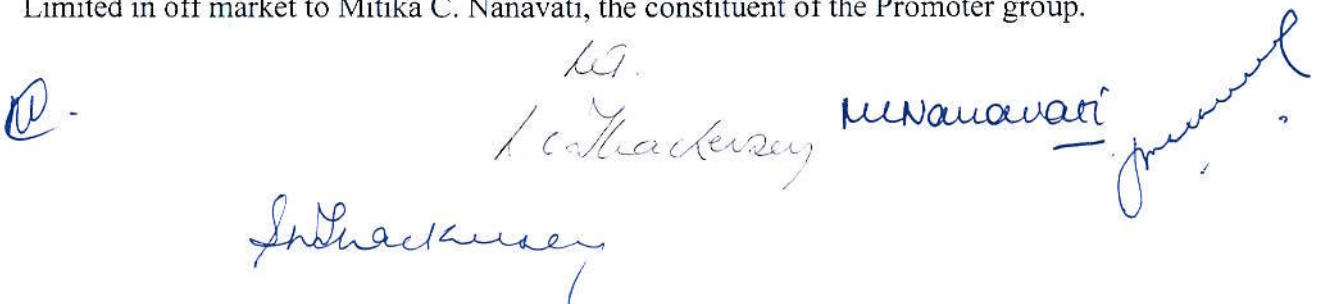 Limited in off market to Mitika C. Nanavati, the constituent of the Promoter group.
Thackersey
MCNanavati
Thackersey